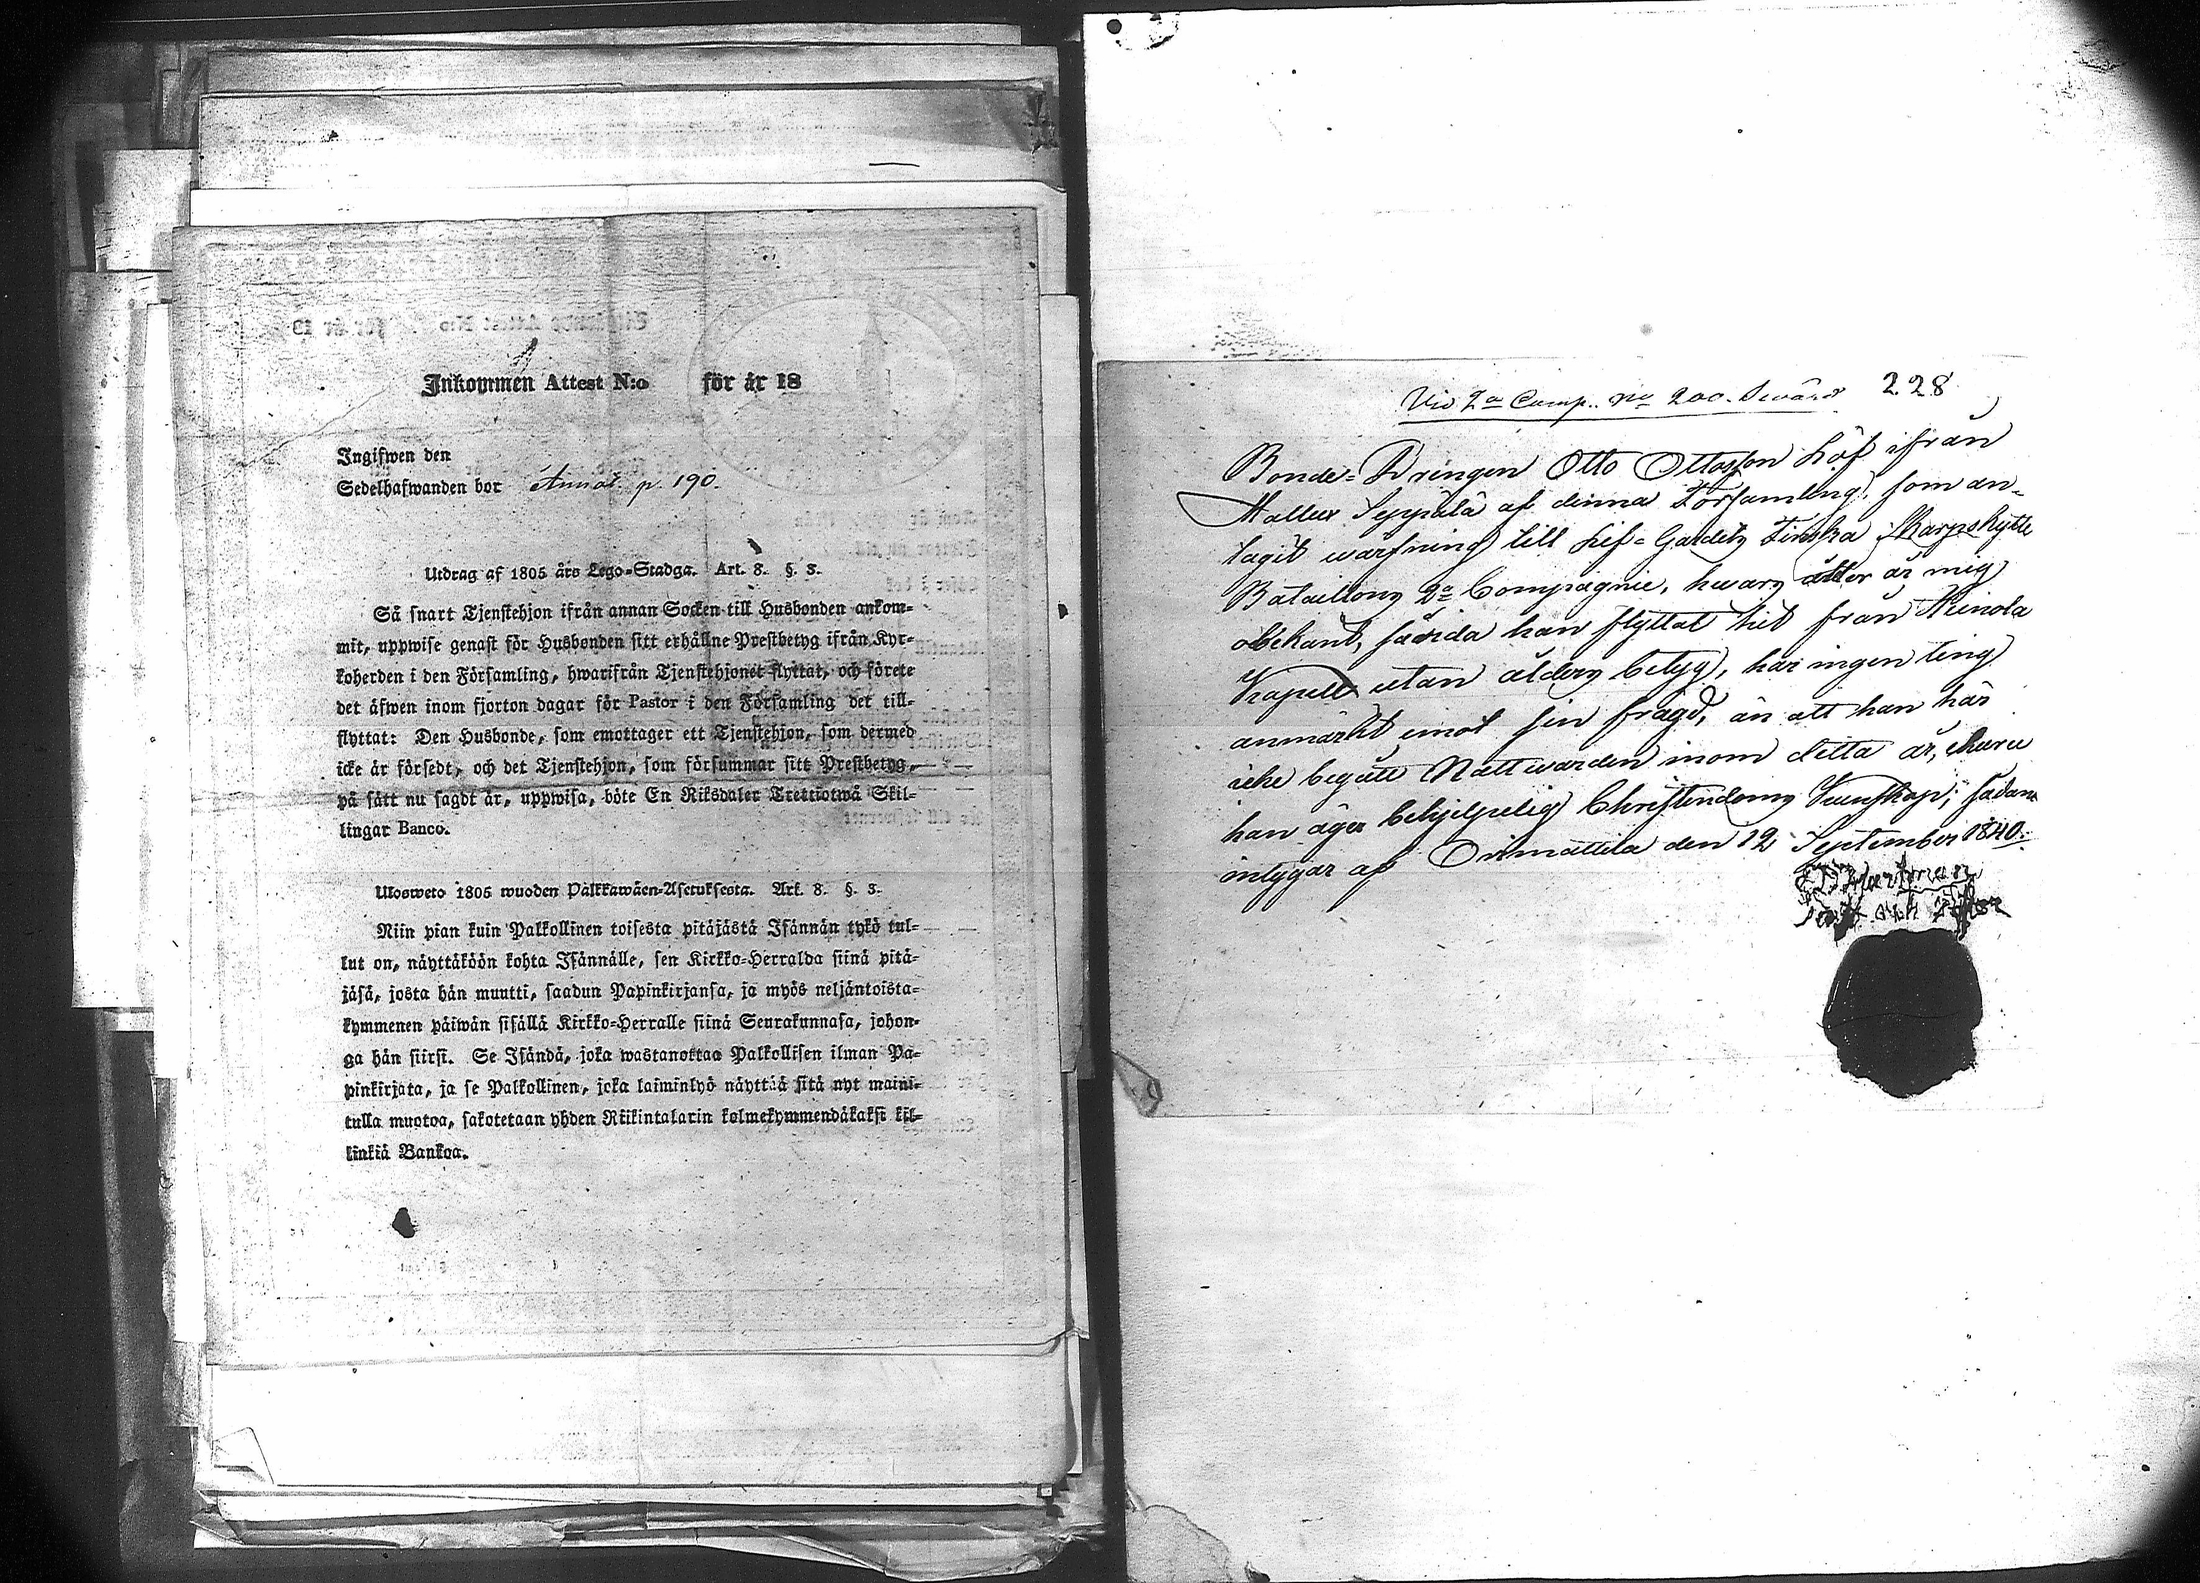 Inkommen Attest N:o för år 18
Ingifwen den
Sedelhafwanden bor Annat p. 190.
Utdrag af 1805 års Lego-Stadga. Art. 8. §. 3.
Så snart Tjenstehjon ifrån annan Socken till Husbonden ankom-
mit, uppwise genast för Husbonden sitt erhållne Prestbetyg ifrån Kyr-
koherden i den Församling, hwarifrån Tjenstehjonet flyttat, och förete
det äfwen inom fjorton dagar för Pastor i den Församling det till-
flyttat: Den Husbonde, som emottager ett Tjenstehjon, som dermed
icke är försedt, och det Tjenstehjon, som försummar sitt Prestbetyg,
på sätt nu sagdt är, uppwisa, böte En Riksdaler Trettiotwå Skil-
lingar Banco.
Ulosweto 1805 wuoden Palkkawäen-Asetuksesta. Art. 8. §. 3.
Niin pian kuin Palkollinen toisesta pitäjästä Isännän tykö tul-
lut on, näyttäköön kohta Isännälle, sen Kirkko-Herralda siinä pitä-
jäsä, josta hän muutti, saadun Papinkirjansa, ja myös neljäntoista-
kymmenen päiwän sisällä Kirkko-Herralle siinä Seurakunnasa, johon-
ga hän siirsi. Se Isändä, joka wastanottaa Palkollisen ilman Pa-
pinkirjata, ja se Palkollinen, joka laiminlyö näyttää sitä nyt maini-
tulla muotoa, sakotetaan yhden Riikintalarin kolmekymmendäkaksi kil-
linkiä Bankoa.
Vid 2a Comp. No 200. Swärd 228
Bonde-Drengen Otto Ottosson Löf ifrån
Mallux Seppälä af denna Församling, som an-
tagit wärfning till Lif-Gardets Finska Skarpskytte
Bataillons 2a Compagnie, hwars ålder är mig
obekant, sådda han flyttat hit från Heinola
Kapell utan ålders betyg, har ingen ting
anmärkt emot sin frägd, än att han här
icke begått Nattwarden inom detta år, churu
han äger behjelpelig Christendoms Kunskap; sådant
intygar af Orimattila den 12 September 1840.
Hartman